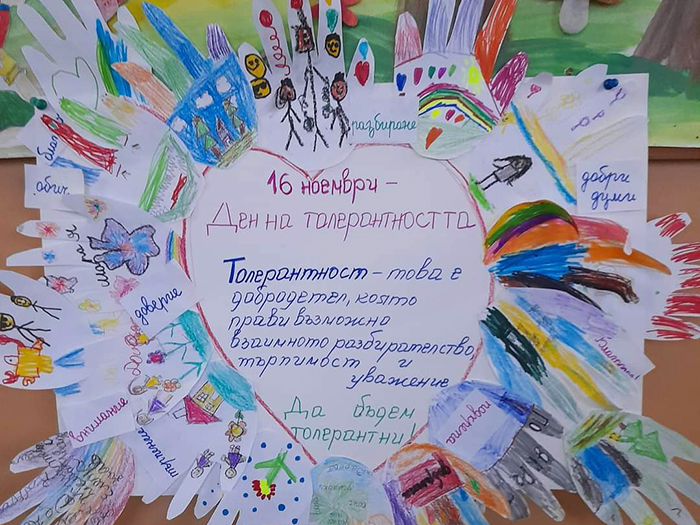 разбиране
обич
добри
думи
16 ноември –
Ден на толерантността
Толерантност – това е
добродетел, която
прави възможно
взаимното разбирателство,
търпимост и
уважение
Да бъдем
толерантни!
доверие
внимание
търпение
подкрепа